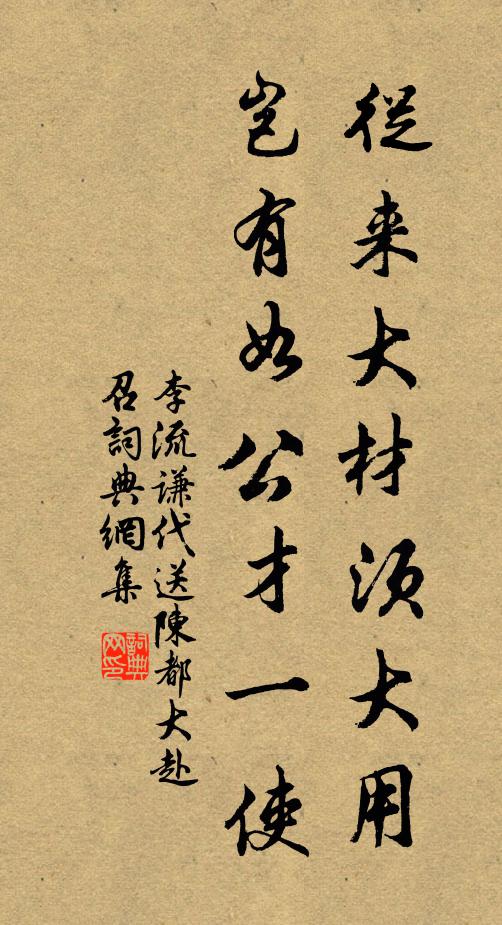 從来大材須大用
豈有如公才一使
李流谦代送陳都大赴
召詞典網集
詞典
网印